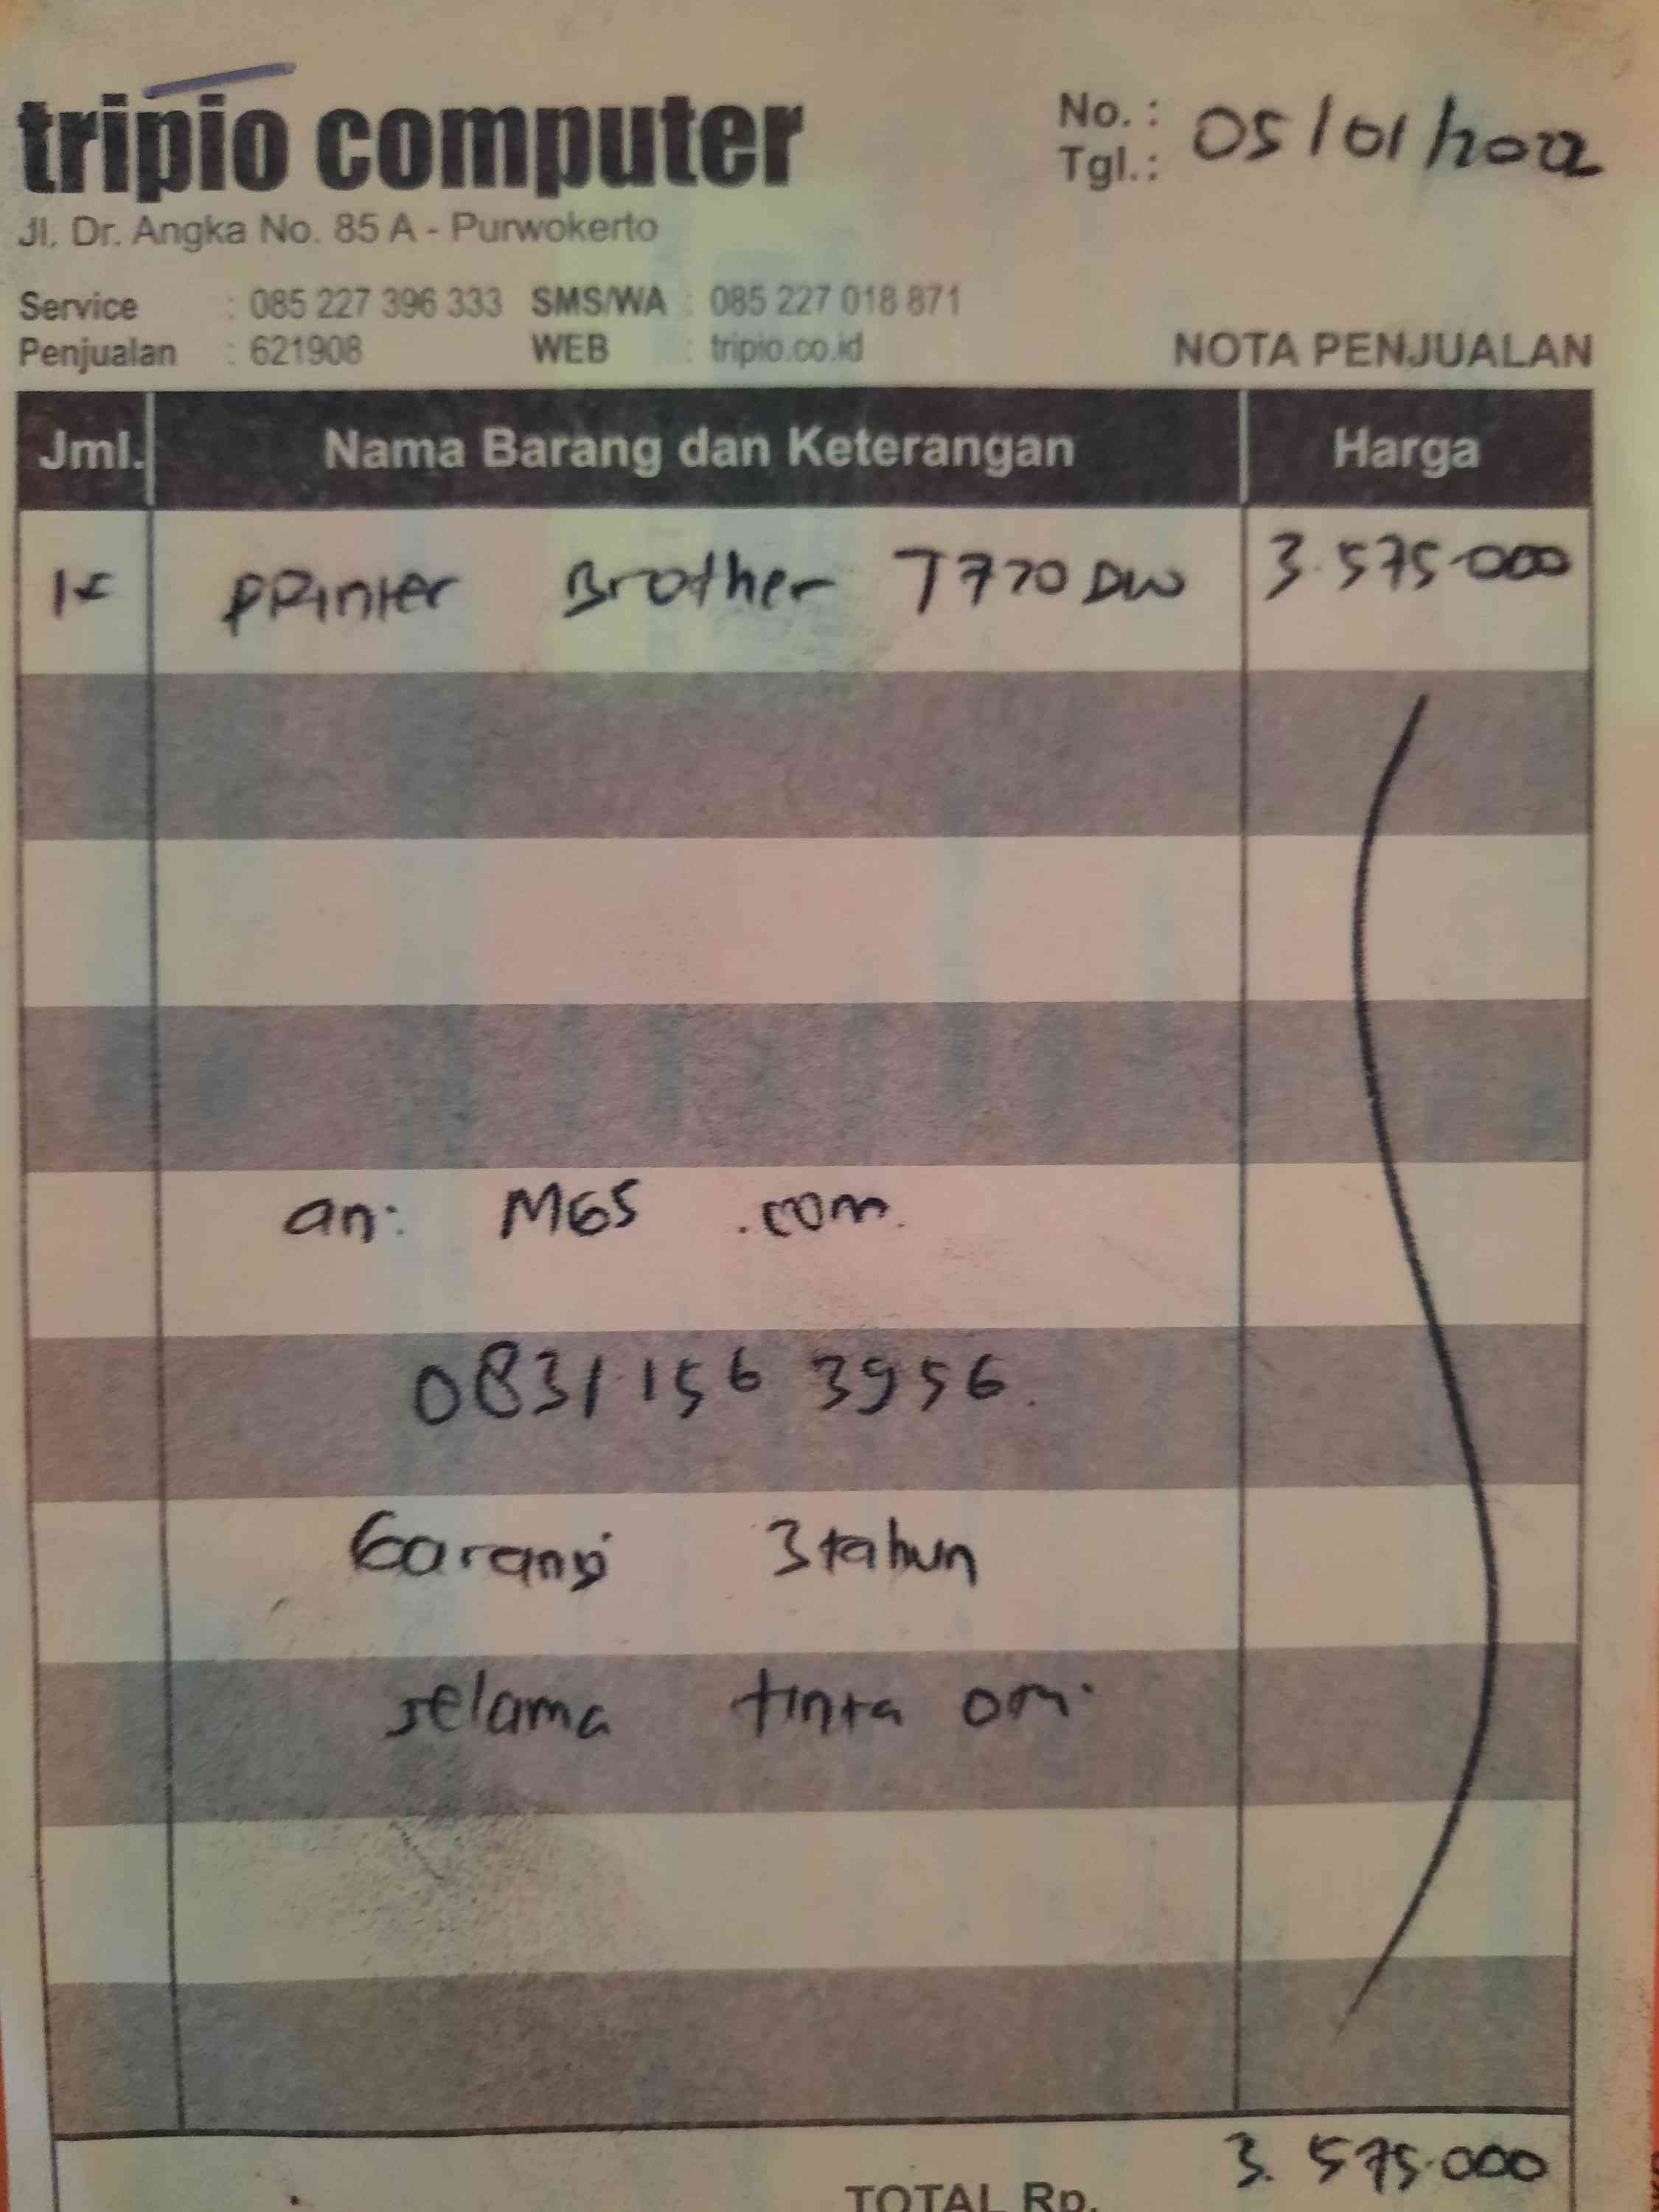 tripio computer
Jl. Dr. Angka No. 85 A - Purwokerto
No. :
Tgl. : 05/01/2022
Service : 085 227 396 333 SMS/WA : 085 227 018 871
Penjualan : 621908 WEB : tripio.co.id
NOTA PENJUALAN
Jml. Nama Barang dan Keterangan Harga
Printer Brother T770DW 3.575.000
an: MGS .com.
0831 156 3956.
Garansi 3 tahun
selama tinta ori
3.575.000
TOTAL Rp.